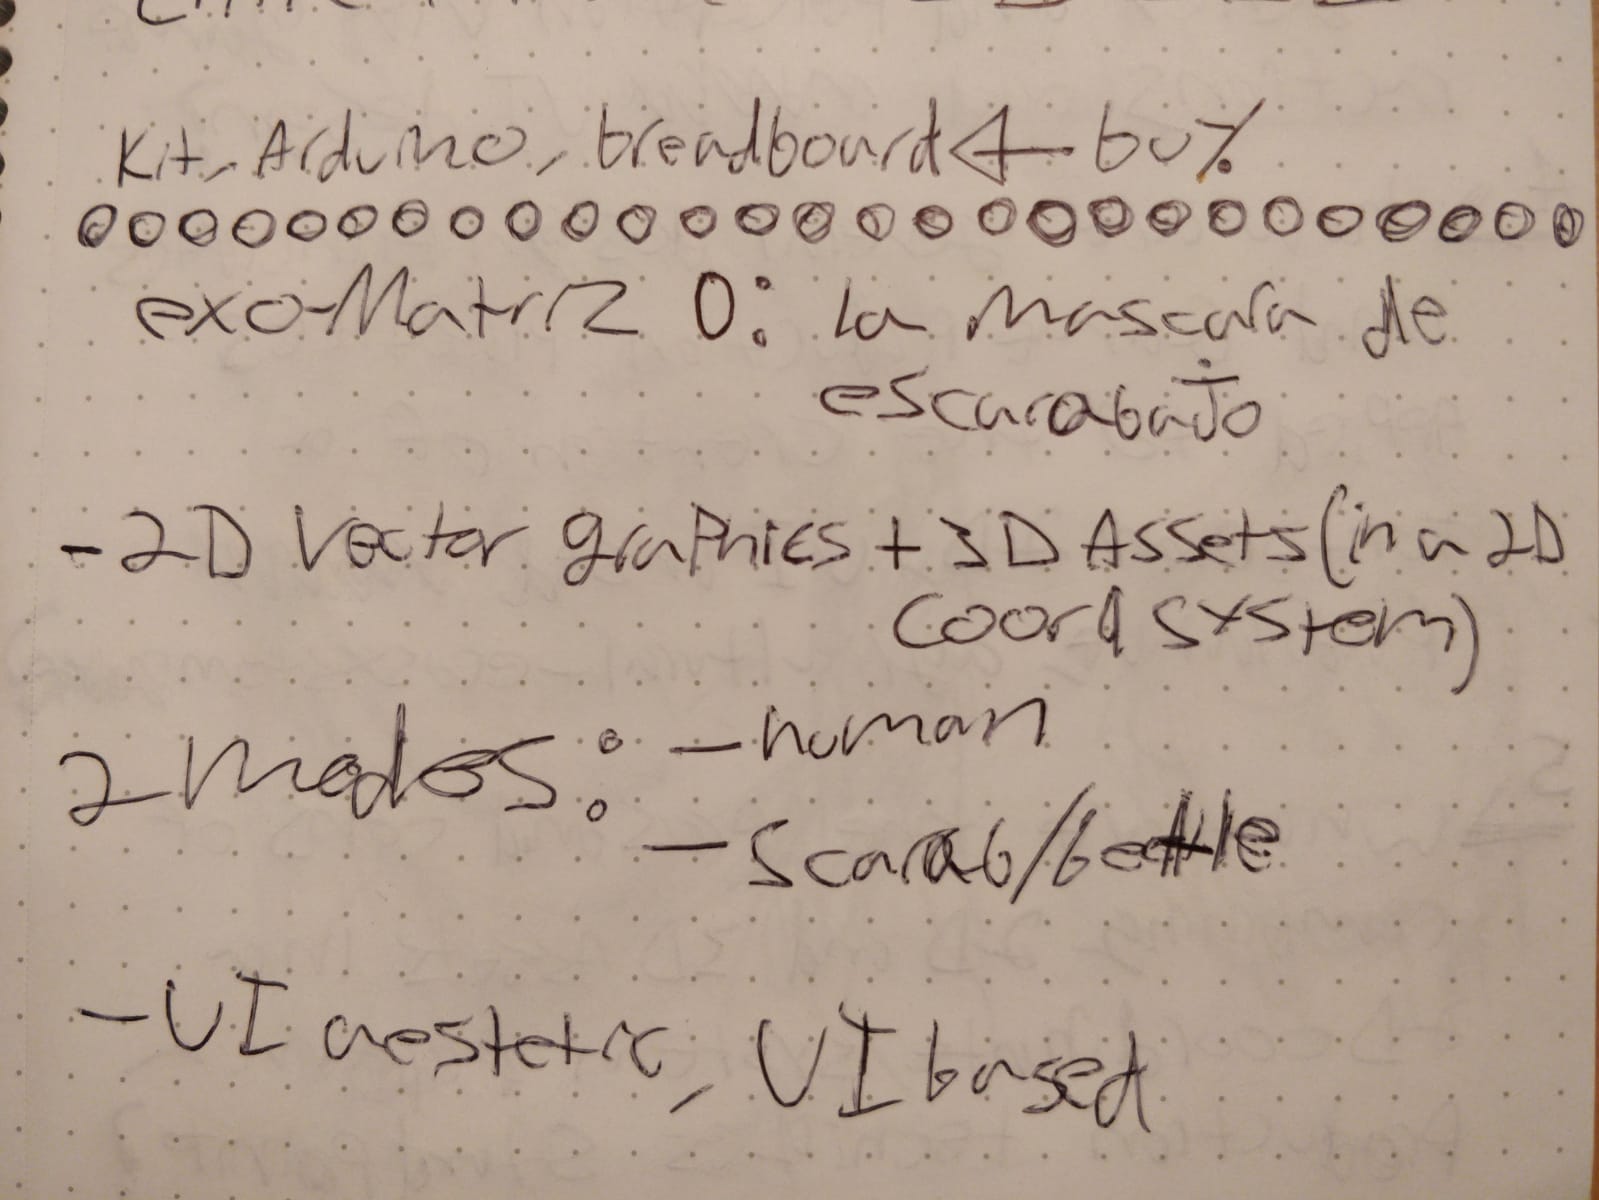 Kit, Arduino, breadboard ← buy.
exo-Matriz 0: la mascara de
escarabajo
- 2D Vector graphics + 3D Assets (in a 2D
coord system)
2 modes: - human
- scarab/beetle
- UI aestetic, UI based